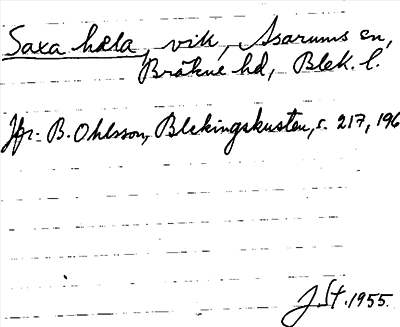 Saxa hæla, vik, Asarums sn,
Bräkne hd, Blek. l.
Jfr: B. Ohlsson, Blekingskusten, s. 217, 196
J. St. 1955.